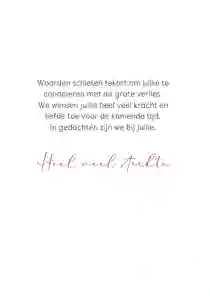 Woorden schieten tekort om jullie te
condoleren met dit grote verlies.
We wensen jullie heel veel kracht en
liefde toe voor de komende tijd.
In gedachten zijn we bij jullie.
Heel veel sterkte